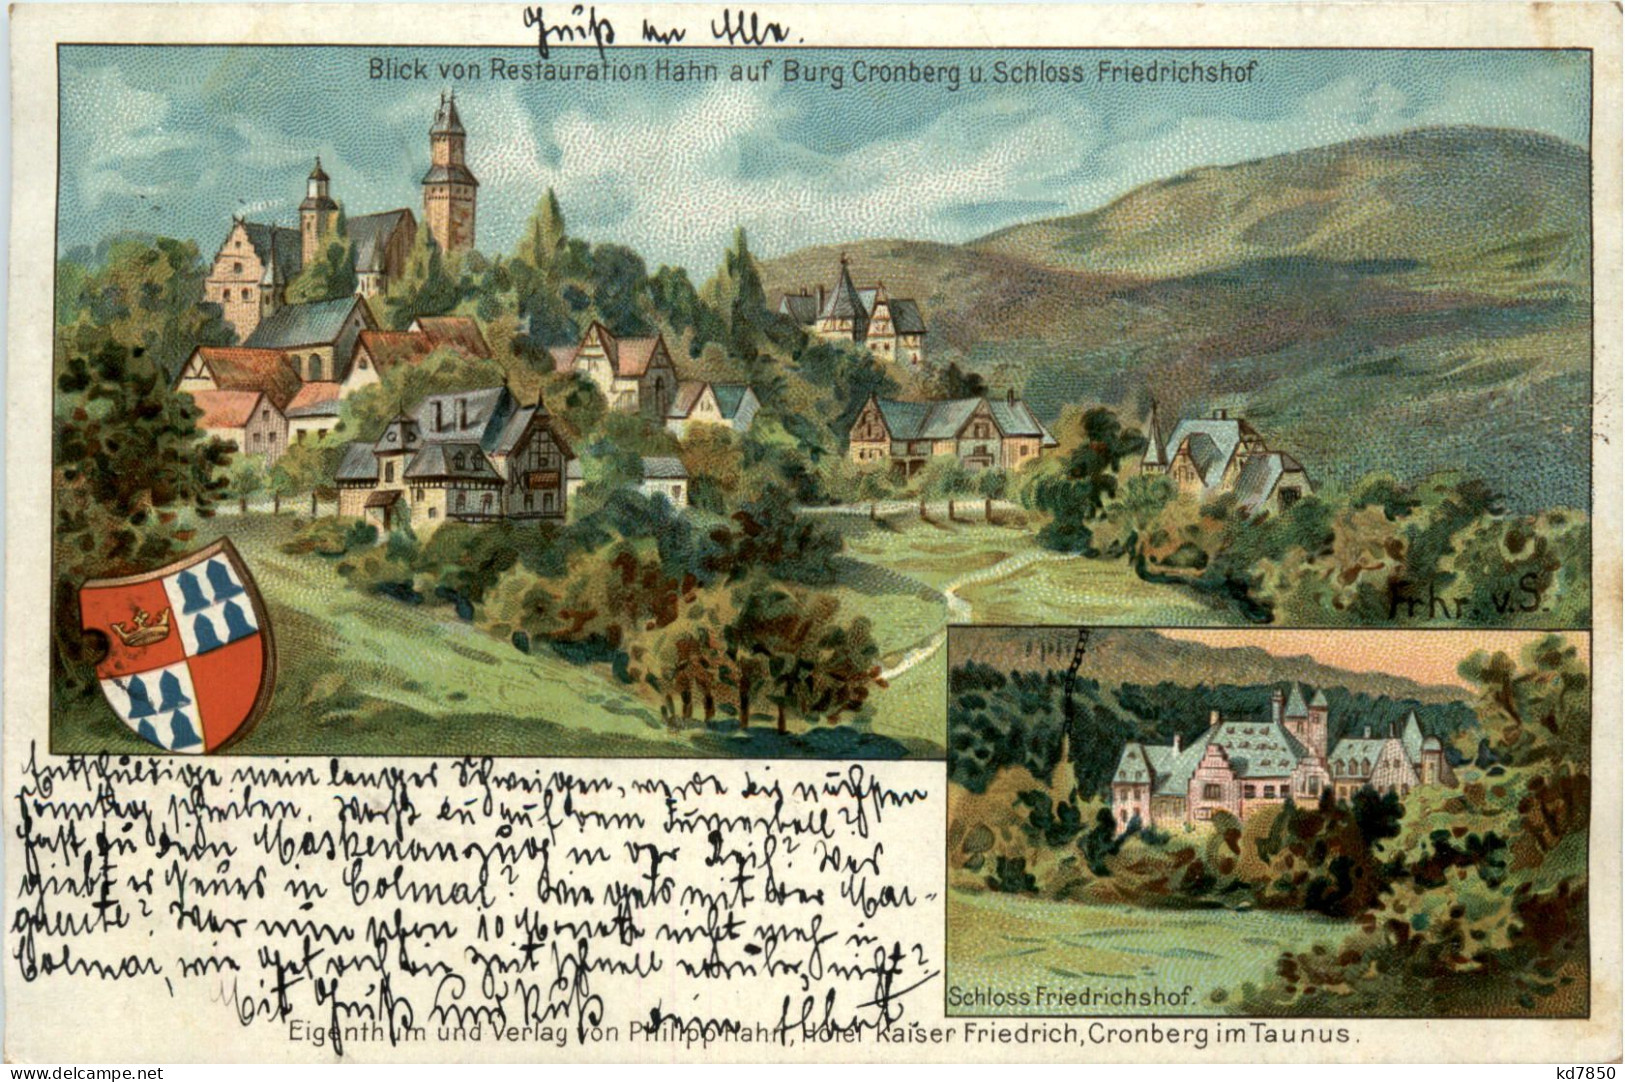 Gruß an Alle.
Blick von Restauration Hahn auf Burg Cronberg u. Schloss Friedrichshof.
Frhr. v. S.
Entschuldige mein langes Schweigen, werde die nächsten
Sonntag schreiben. Warst du auf dem Turnerball?
Hast du dein Maskenanzug in der Reih? Was
giebt es Neues in Colmar? Wie gehts mit der Mar-
guerite? War nun schon 10 Monate nicht mehr in
Colmar, wie get doch die Zeit schnell vorüber, nicht?
Mit Gruß und Kuß dein Albert.
Schloss Friedrichshof.
Eigenthum und Verlag von Philipp Hahn, Hôtel Kaiser Friedrich, Cronberg im Taunus.
www.delcampe.net
kd7850